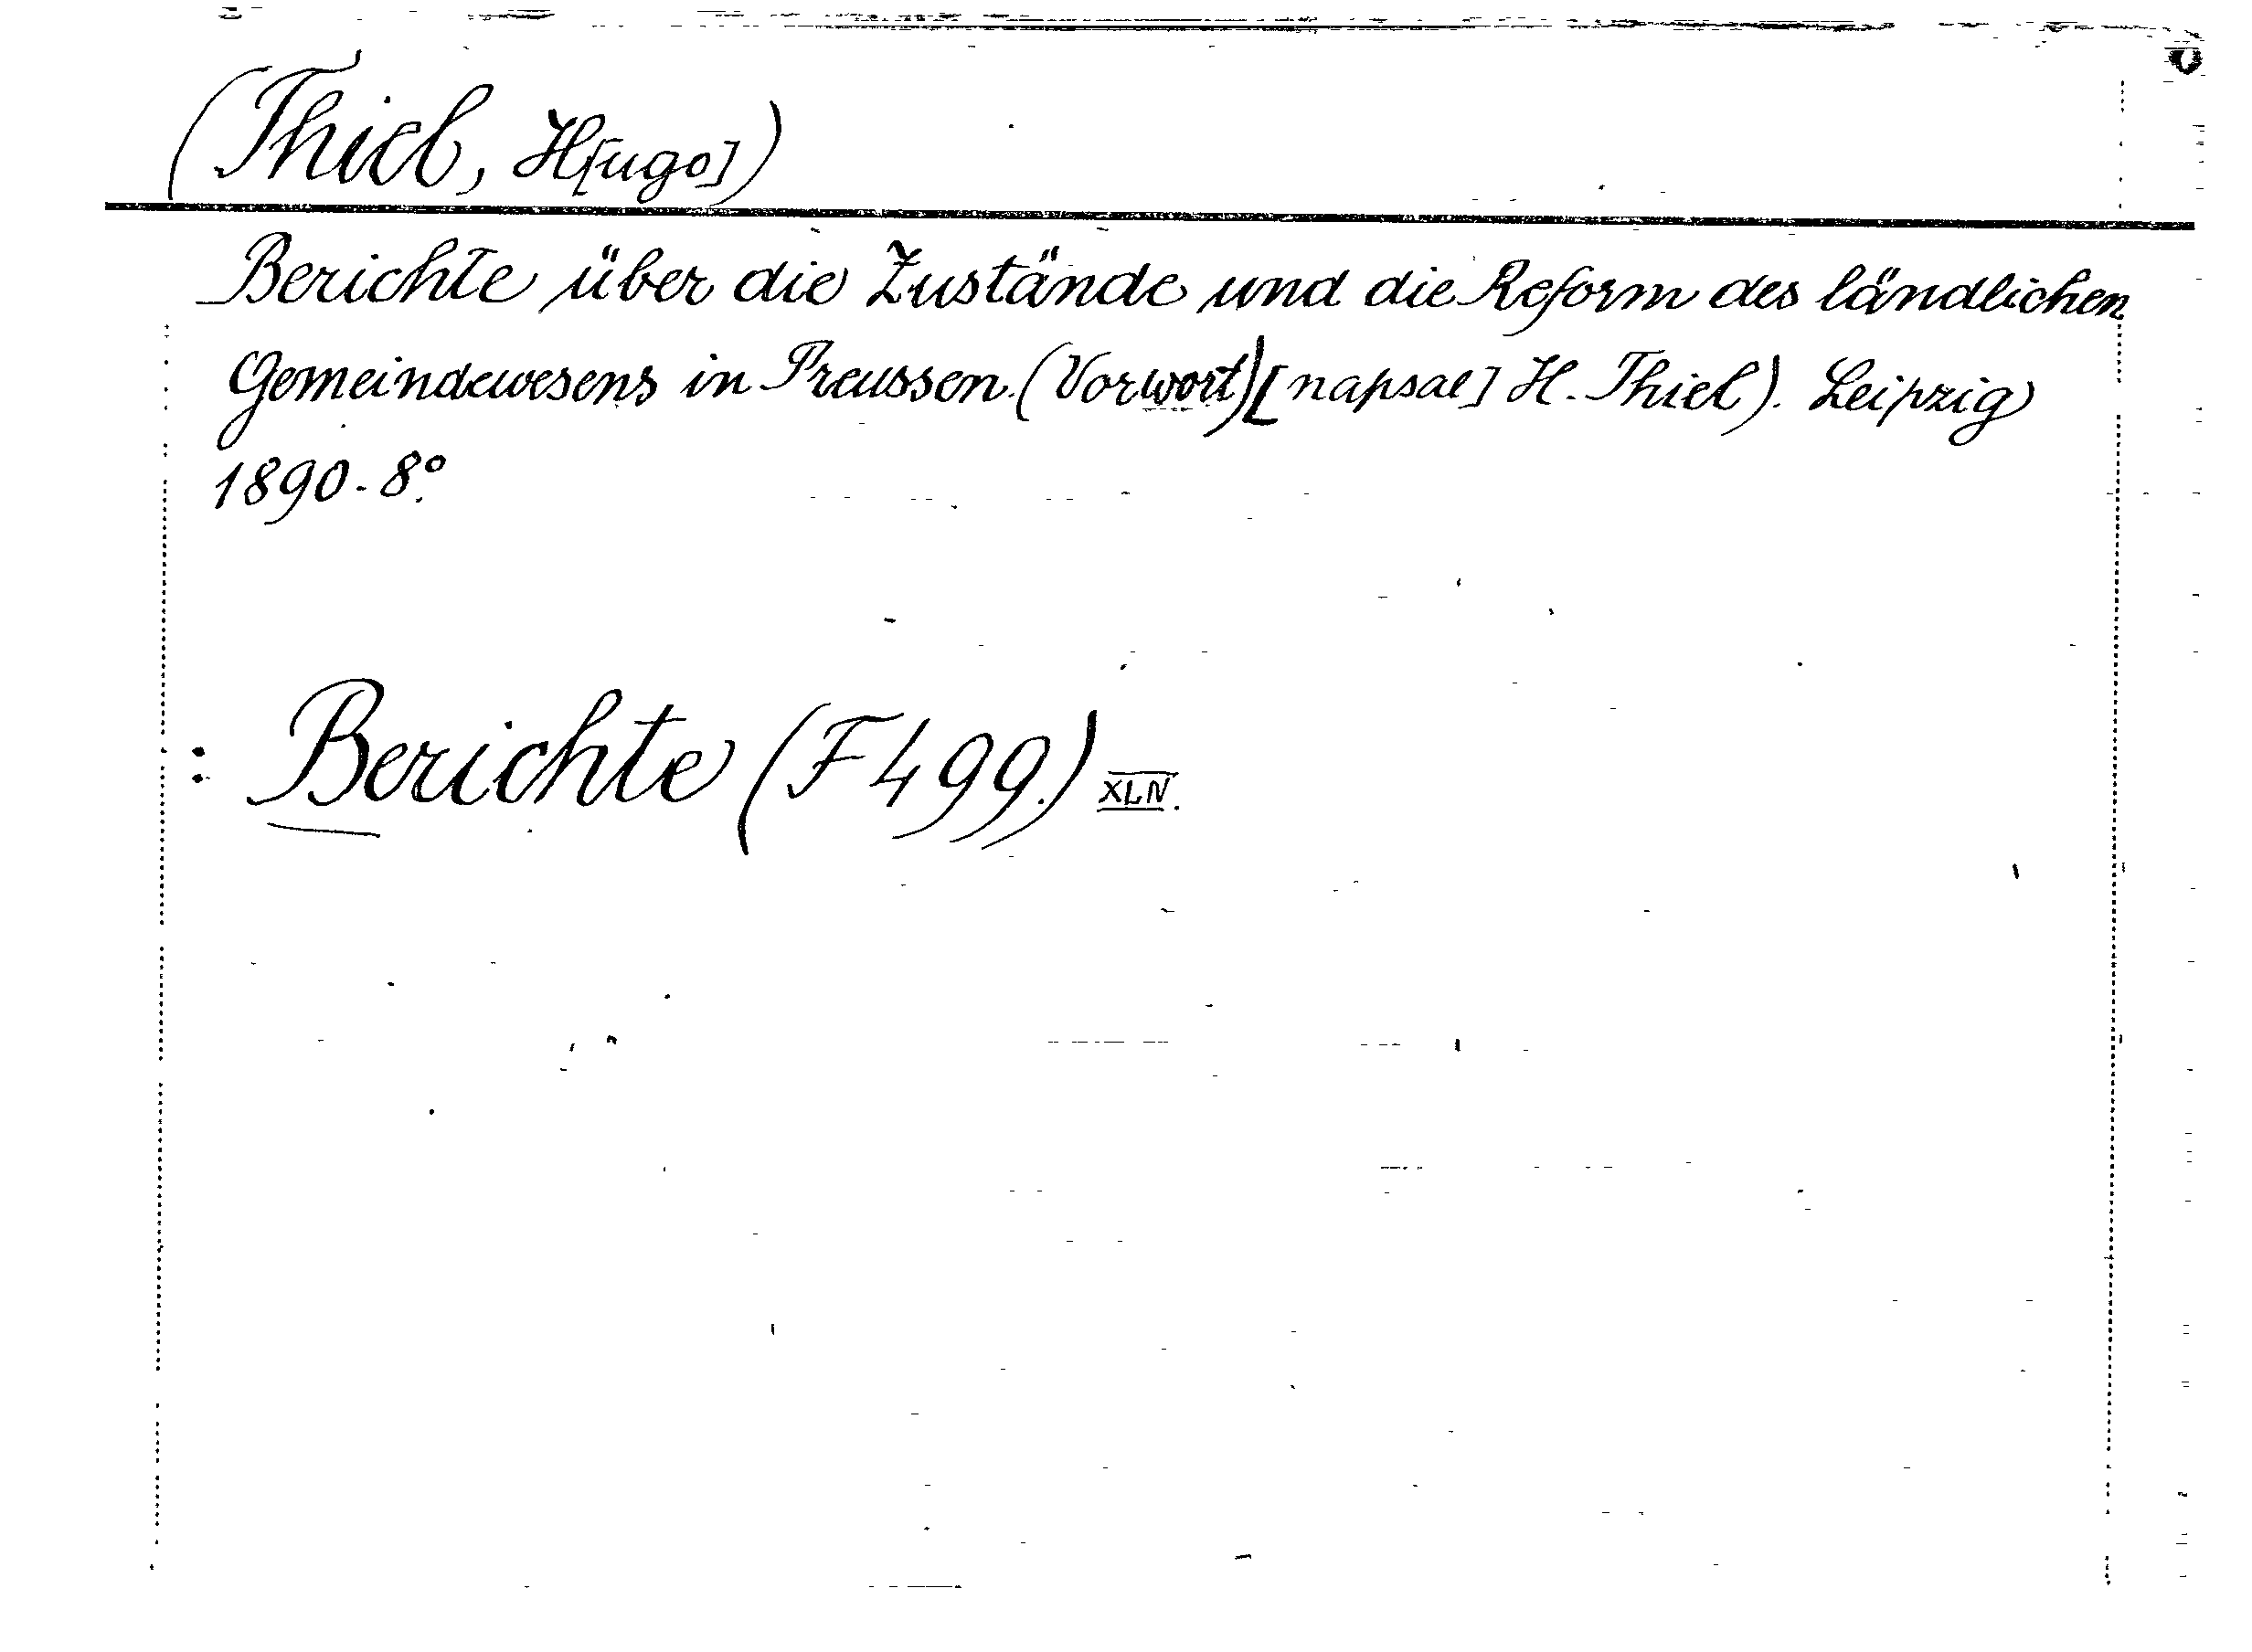 (Thiel, H[ugo])
Berichte über die Zustände und die Reform des ländlichen
Gemeindewesens in Preussen. (Vorwort) [napsal] H. Thiel). Leipzig
1890. 8°.
: Berichte (F 499.) XLIV.